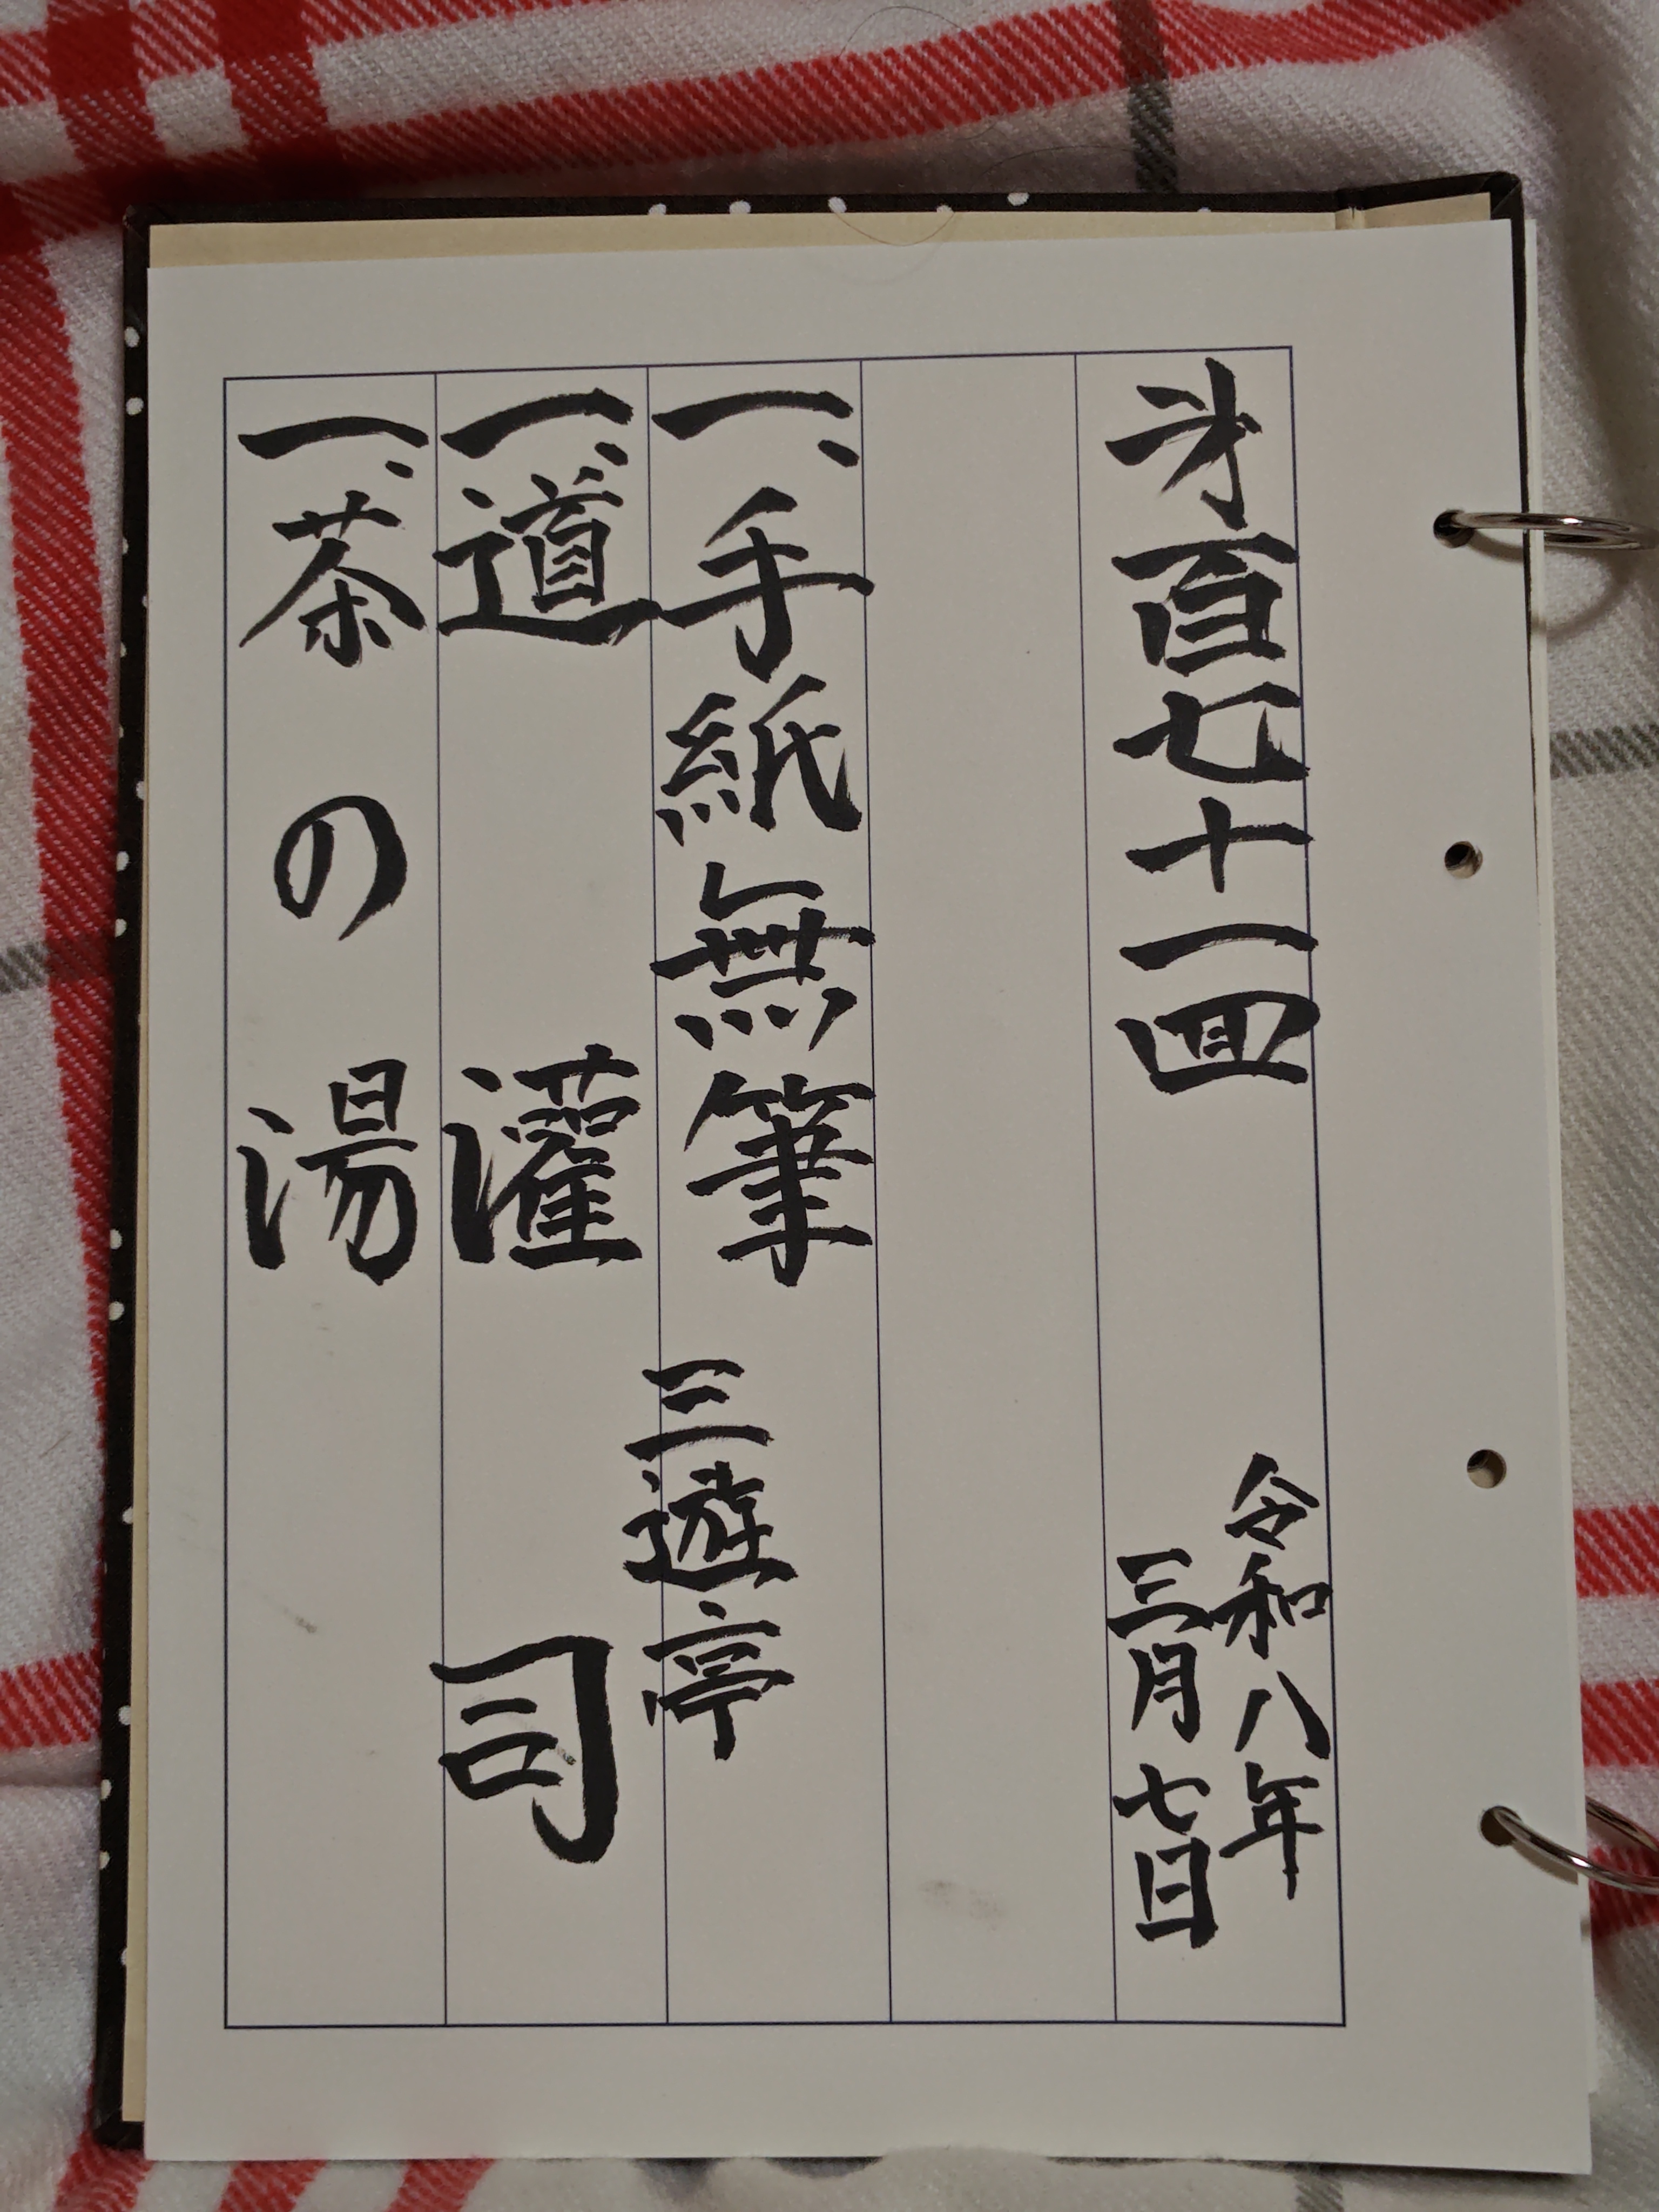 才百七十一回
令和八年
三月七日
一、手紙無筆
一、道灌
一、茶の湯
三遊亭
司